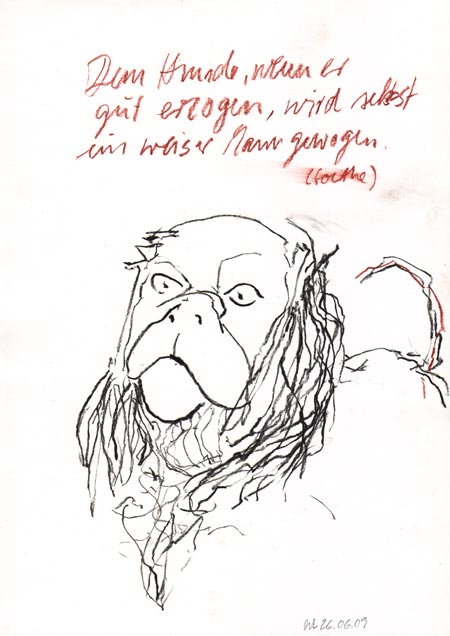 Dem Hunde, wenn er
gut erzogen, wird selbst
ein weiser Mann gewogen.
(Goethe)
26.06.09